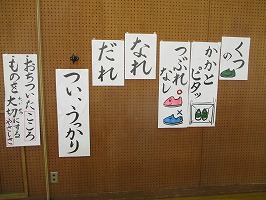 くつ
の
かかと
ピタッ
つぶれ
なし
なれ
だれ
つい、うっかり
おちついたこころ
ものを大切にする
やさしさ